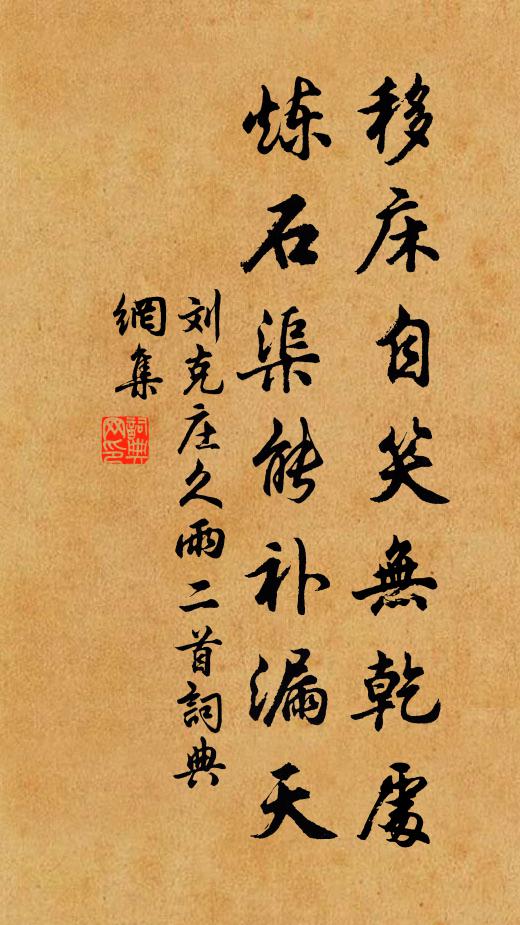 移床自笑無乾處
炼石渠能补漏天
刘克庄久雨二首詞典
網集
詞典
网印